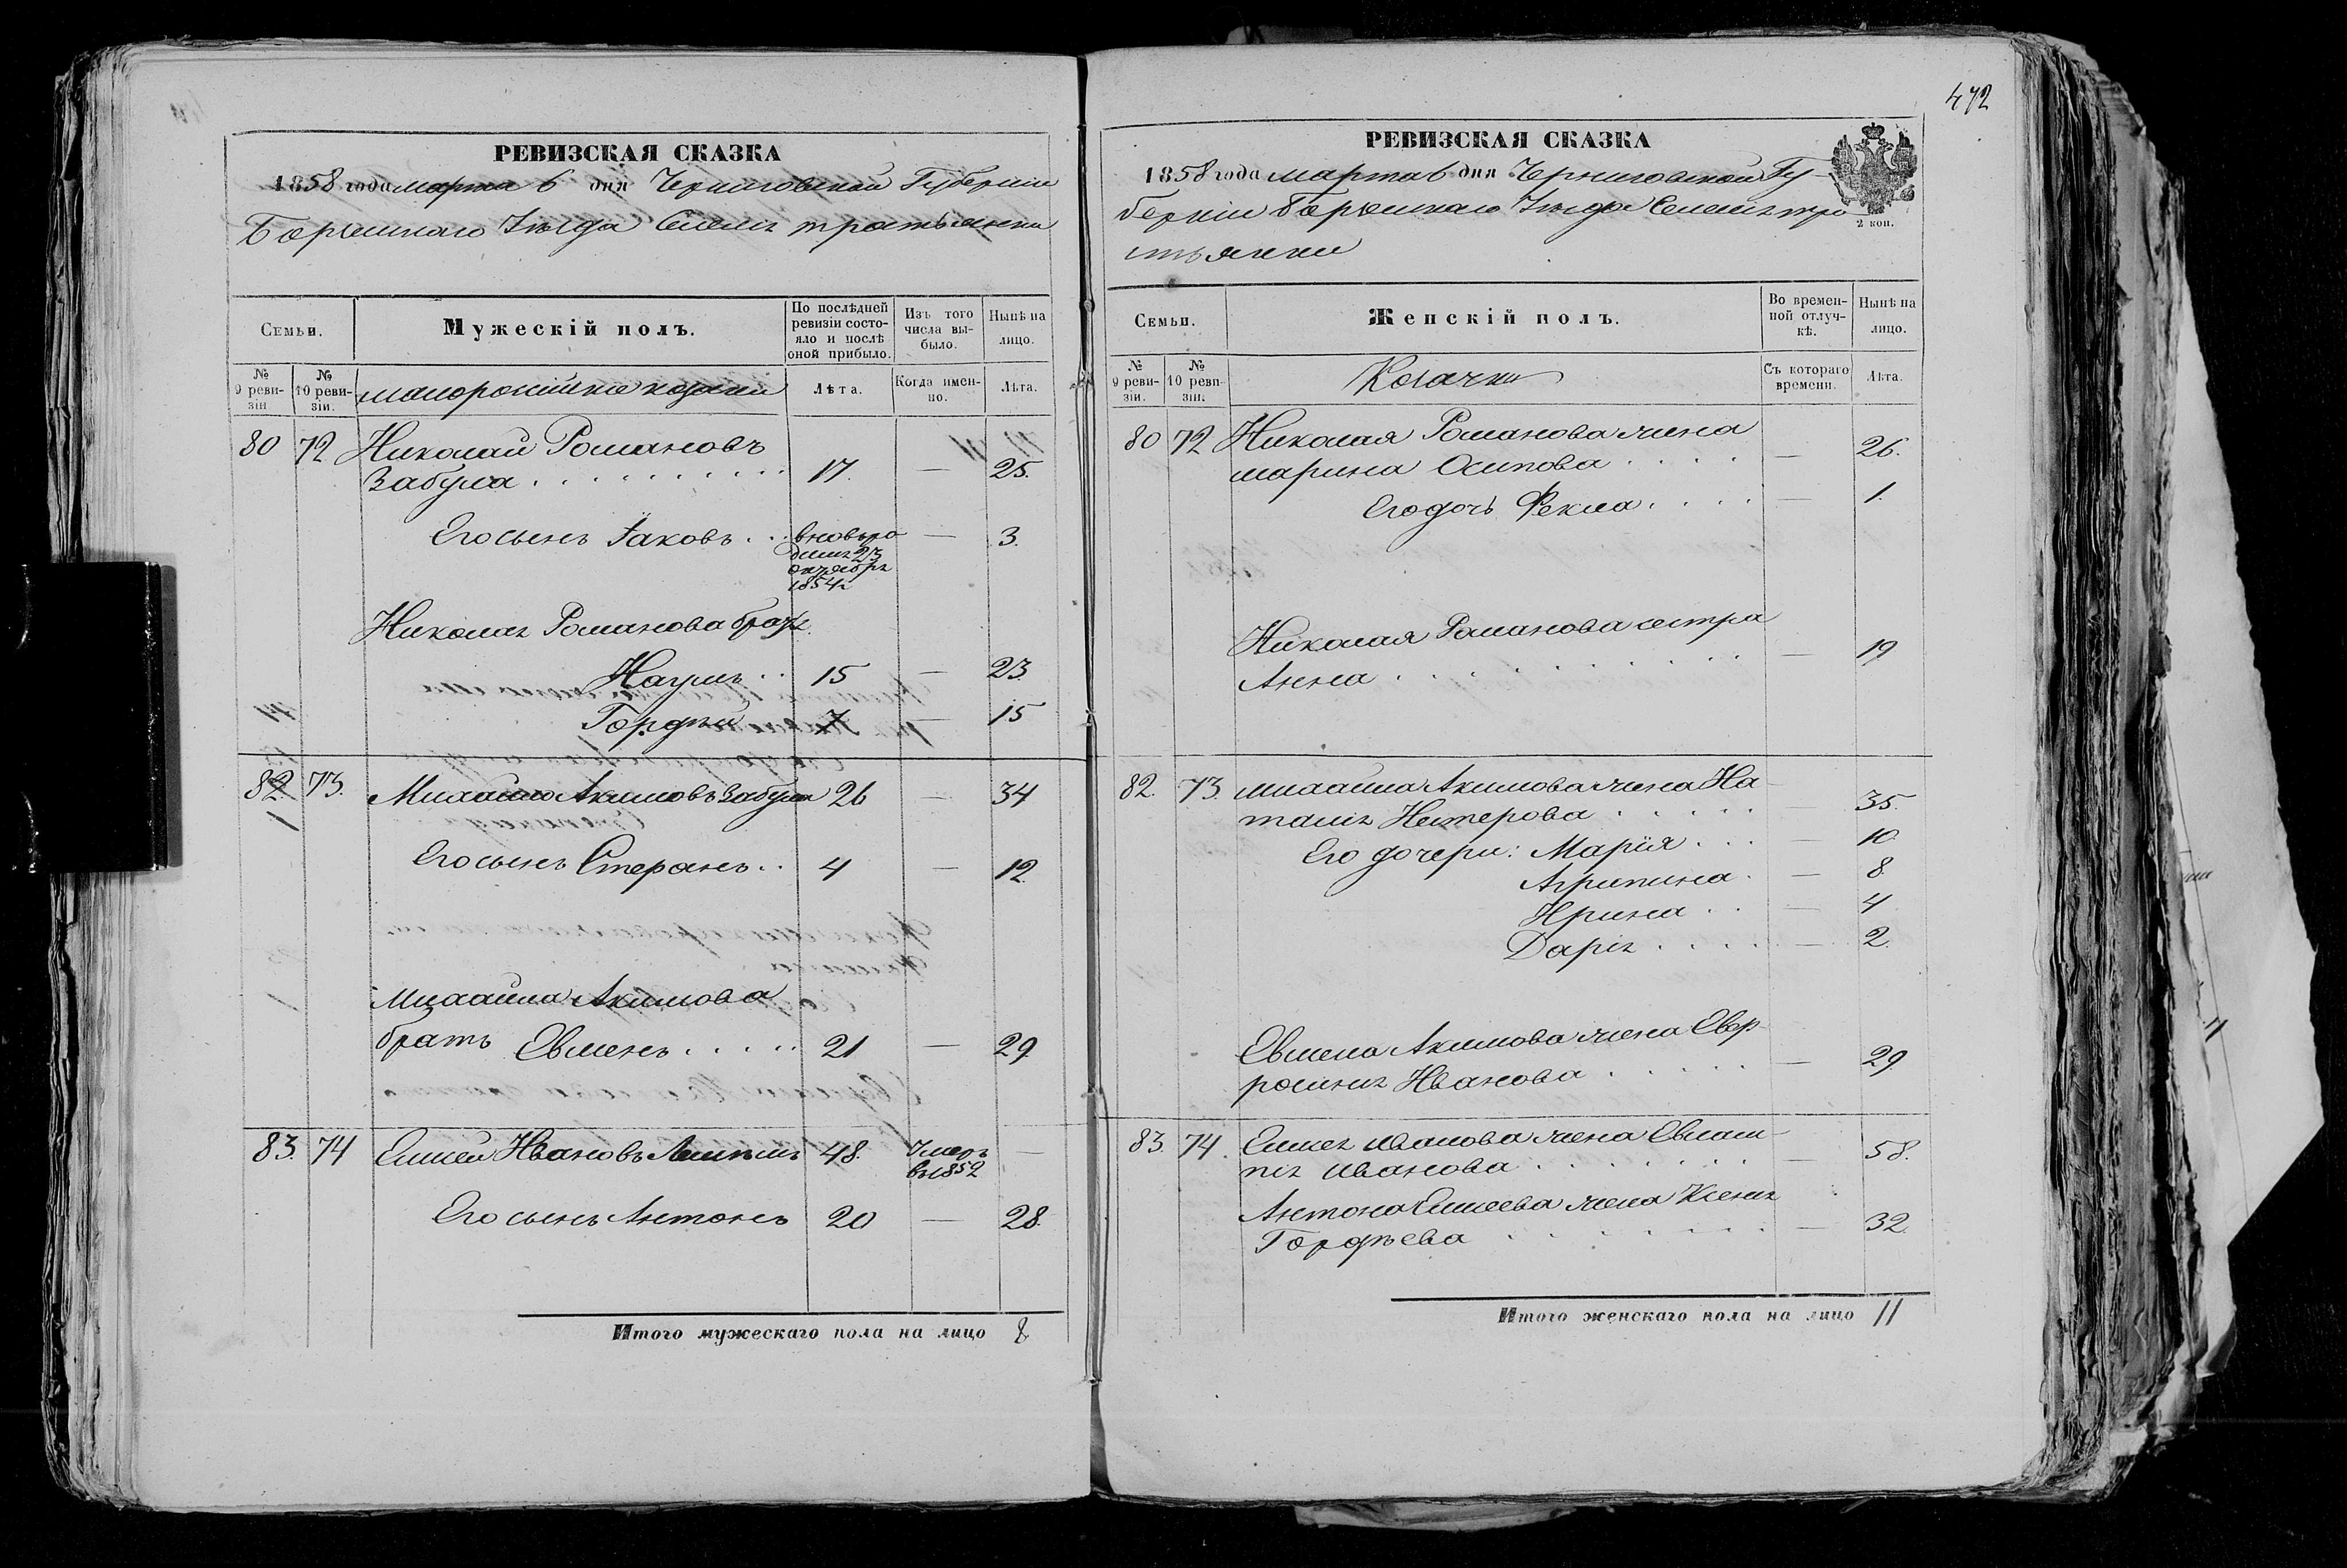 472
РЕВИЗСКАЯ СКАЗКА
1858 года марта 6 дня Черниговской Губерніи
Борзенскаго Уѣзда Селенія тростянки
Семьи.
Мужескій полъ.
По послѣдней ревизіи состояло и послѣ оной прибыло.
Изъ того числа выбыло.
Нынѣ на лицо.
№ 9 ревизіи
№ 10 ревизіи.
малоросійскіе козаки
Лѣта.
Когда именно.
Лѣта.
80 72 Николай Романовъ
Забула . . . . . 17. — 25.
Его сынъ Іаковъ . . вновь ро — 3.
дилъ 23
октябр
1854
Николая Романова братъ
Наумъ . . 15 — 23.
Гордѣй 7 — 15
82. 73. Михайло Акимовъ Забула 26 — 34
1
Его сынъ Стефанъ . . 4 — 12.
Михайла Акимова
братъ Евменъ . . . . . 21 — 29
83. 74 Елисей Ивановъ 48. Умеръ —
въ 1852
Его сынъ Антонъ 20 — 28.
Итого мужескаго пола на лицо 8
РЕВИЗСКАЯ СКАЗКА
1858 года марта 6 дня Черниговской Гу-
берніи Борзенскаго Уѣзда Селенія тро
стянки
2 коп.
Семьи.
Женскій полъ.
Во временной отлучкѣ.
Нынѣ на лицо.
№ 9 ревизіи.
№ 10 ревизіи.
Козачки
Съ котораго времени.
Лѣта.
80 72 Николая Романова жена
марина Осипова . . . . — 26.
Его дочь Фекла . . . . — 1.
Николая Романова сестра
Анна . . . . . — 19
82. 73. михайла Акимова жена На-
талія Нестерова . . . . . — 35.
Его дочери: Марія . . . — 10.
Агрипина . — 8
Ирина . . — 4
Дарія . . . . — 2.
Евмена Акимова жена Евф-
росинія Иванова . . . . . — 29
83. 74. Елисея иванова жена Евлам-
пія иванова . . . . . — 58.
Антона Елисеева жена Ксенія
Гордѣева . . . . . — 32.
Итого женскаго пола на лицо 11